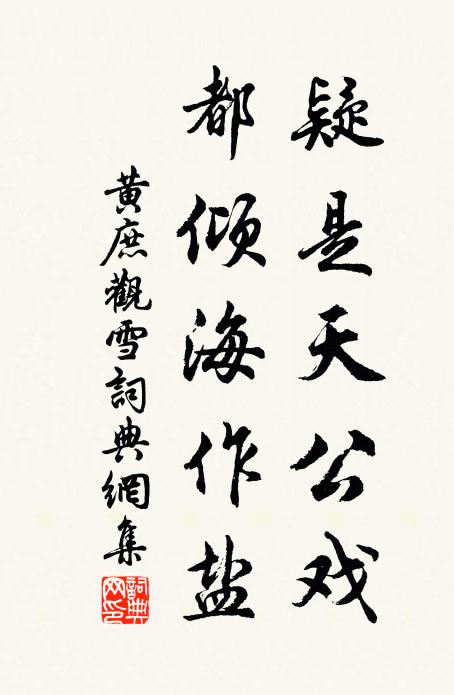 疑是天公戏
都倾海作盐
黄庶觀雪詞典網集
詞典网印